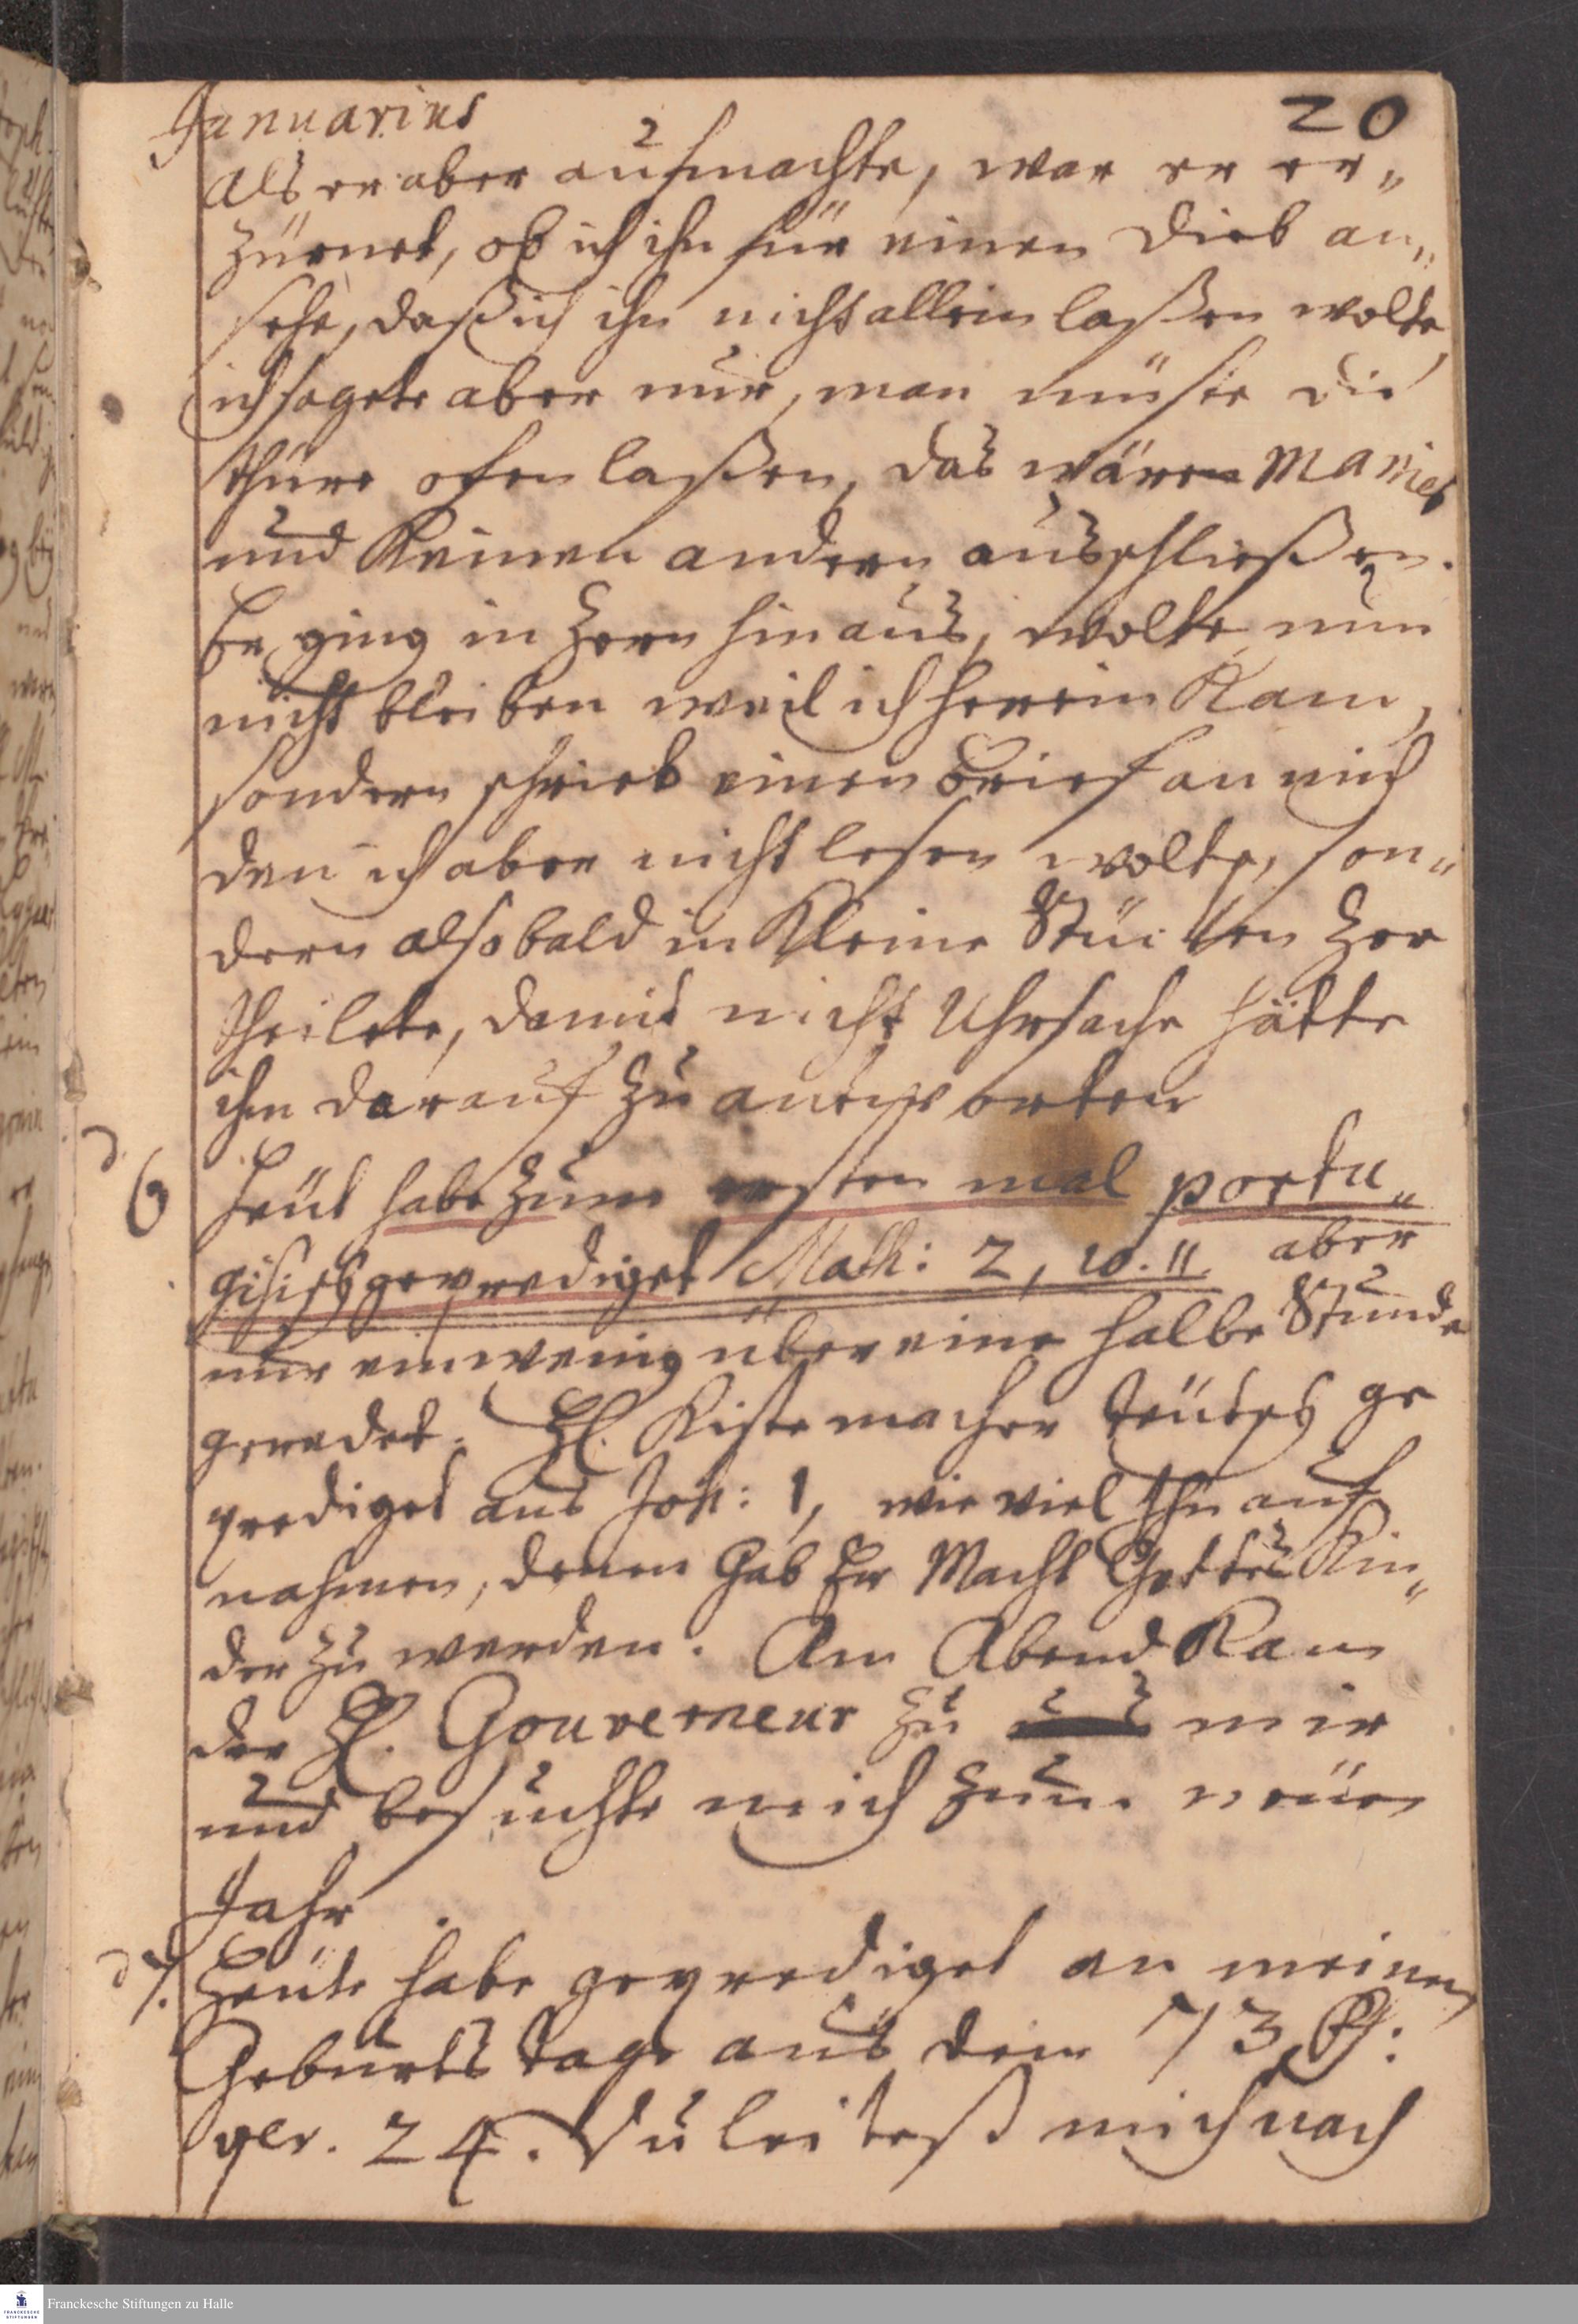 Januarius 20
Als er aber aufmachte, war er er„
zürnet, ob ich ihn für einen Dieb an„
sehe, daß ich ihn nicht allein laßen wolte
ich sagete aber nur, man müste die
thüre ofen laßen, das wäre manier
und Keinen andern ausschließen.
Er ging in Zorn hinaus, wolte nun
nicht bleiben weil ich herein Kam,
sondern schrieb einen Brief an mich
den ich aber nicht lesen wolte, son„
dern alsobald in Kleine Stücken Zer
theilete, damit nicht Uhrsache hätte
ihm darauf zu antworten
d. 6 Heüt habe zum ersten mal portu„
gisisch geprediget Math: 2, 10. 11. aber
nur ein wenig über eine halbe Stunde
geredet. H. Kistemacher teütsch ge
prediget aus Joh: 1, wie viel Ihn auf
nahmen, denen Gab Er Macht Gottes Kin„
der zu werden. Am Abend Kam
der H. Gouverneur zu uns mir
und besuchte mich zum neüen
Jahr.
d 7. Heüte habe geprediget an meinem
Geburts tage aus dem 73 Ps:
ver. 24. Du leitest mich nach
Franckesche Stiftungen zu Halle
FRANCKESCHE
STIFTUNGEN